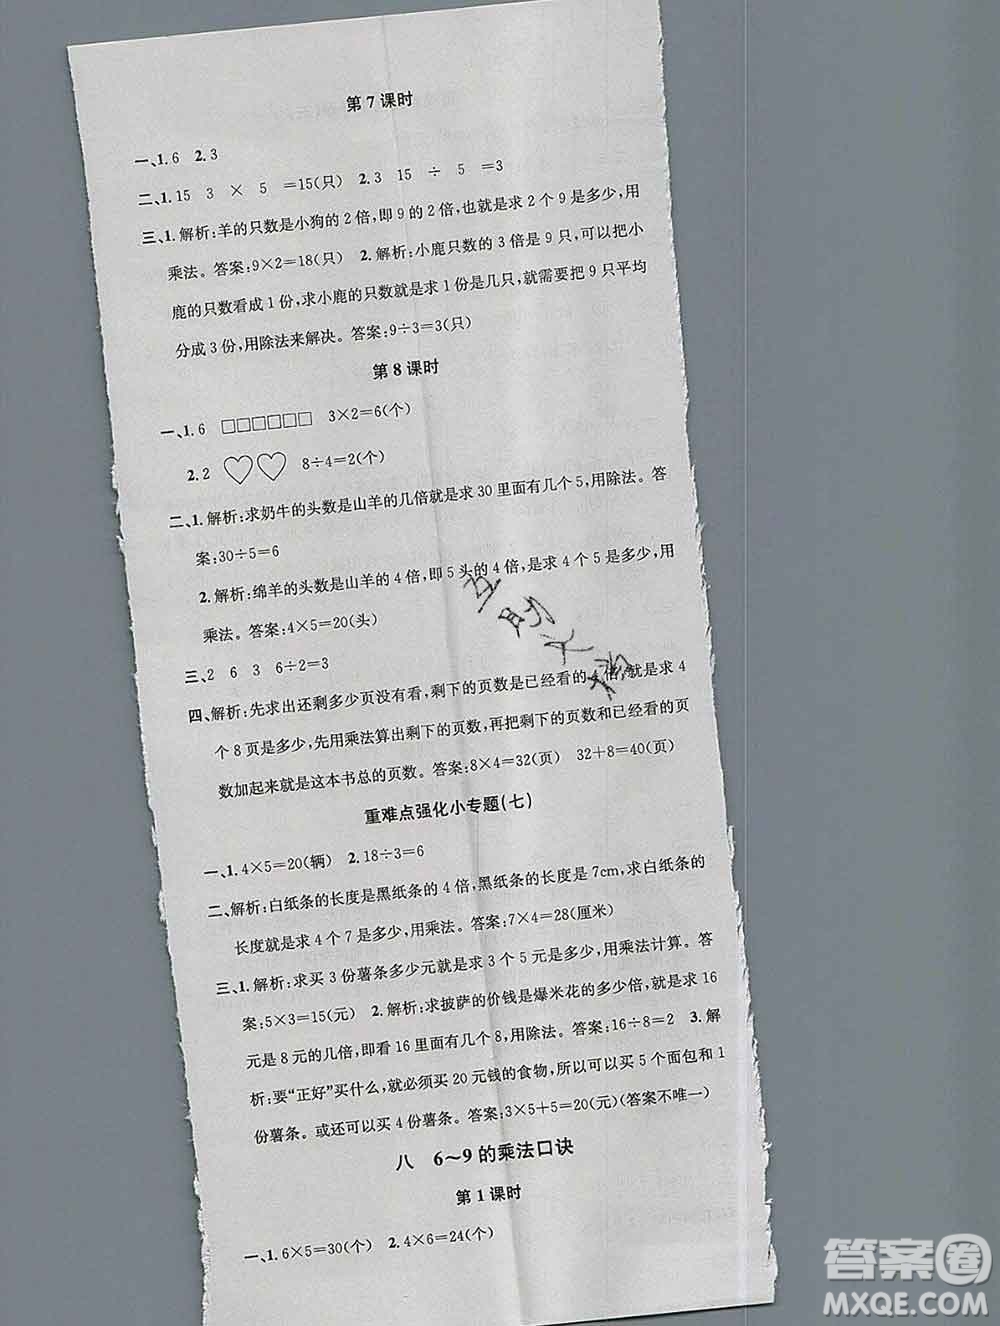 第7课时
一、1.6 2.3
二、1.15 3 × 5 =15(只) 2.3 15 ÷ 5 =3
三、1.解析:羊的只数是小狗的2倍,即9的2倍,也就是求2个9是多少,用
乘法。答案:9×2=18(只) 2.解析:小鹿只数的3倍是9只,可以把小
鹿的只数看成1份,求小鹿的只数就是求1份是几只,就需要把9只平均
分成3份,用除法来解决。答案:9÷3=3(只)
第8课时
一、1.6 □□□□□□ 3×2=6(个)
2.2 ♡♡ 8÷4=2(个)
二、1.解析:求奶牛的头数是山羊的几倍就是求30里面有几个5,用除法。答
案:30÷5=6
2.解析:绵羊的头数是山羊的4倍,即5头的4倍,是求4个5是多少,用
乘法。答案:4×5=20(头)
三、2 6 3 6÷2=3
四、解析:先求出还剩多少页没有看,剩下的页数是已经看的4倍,就是求4
个8页是多少,先用乘法算出剩下的页数,再把剩下的页数和已经看的页
数加起来就是这本书总的页数。答案:8×4=32(页) 32+8=40(页)
重难点强化小专题(七)
一、1.4×5=20(辆) 2.18÷3=6
二、解析:白纸条的长度是黑纸条的4倍,黑纸条的长度是7cm,求白纸条的
长度就是求4个7是多少,用乘法。答案:7×4=28(厘米)
三、1.解析:求买3份薯条多少元就是求3个5元是多少,用乘法计算。答
案:5×3=15(元) 2.解析:求披萨的价钱是爆米花的多少倍,就是求16
元是8元的几倍,即看16里面有几个8,用除法。答案:16÷8=2 3.解
析:要“正好”买什么,就必须买20元钱的食物,所以可以买5个面包和1
份薯条。或还可以买4份薯条。答案:3×5+5=20(元)(答案不唯一)
八 6～9的乘法口诀
第1课时
一、1.6×5=30(个) 2.4×6=24(个)
答案圈
MXQE.COM